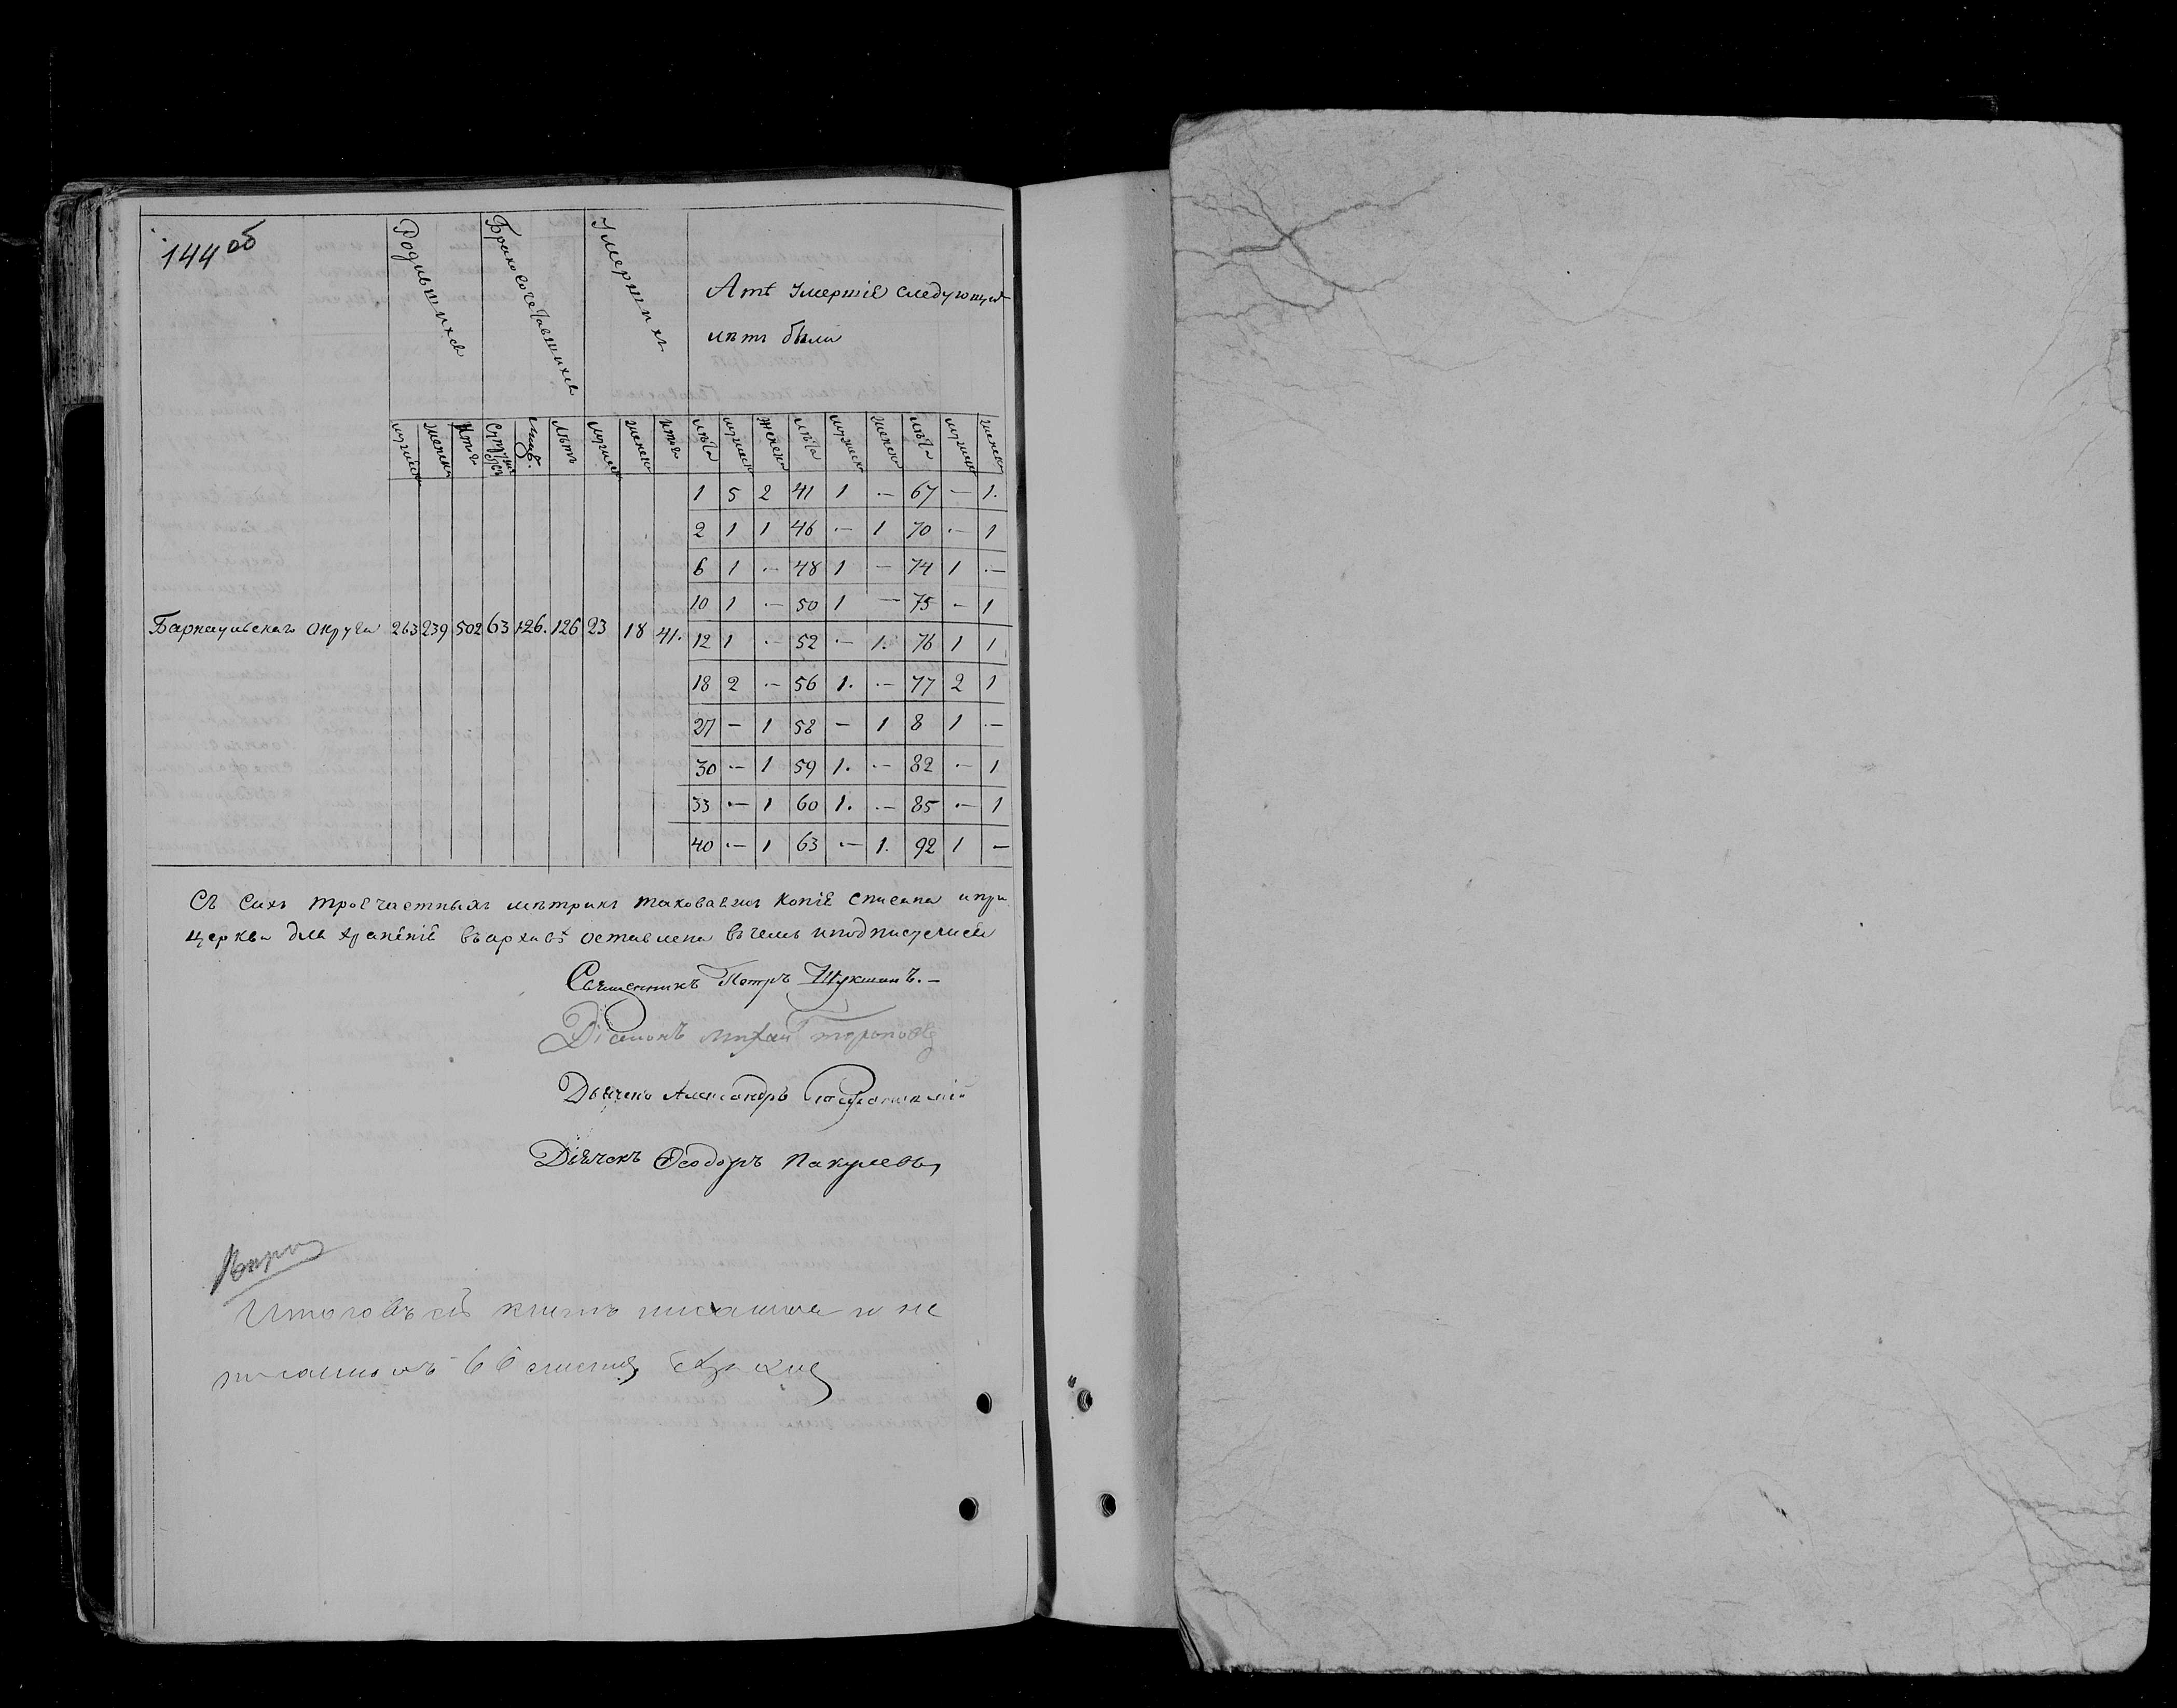 144 об
Родившихся
Бракосочетавшихся
Умершихъ
Лѣтъ Умершіе следующихъ
лѣтъ были
мужска женск Итого Супружествъ Лѣтъ мужска женск Итого лѣта мужска женска лѣта мужска женска лѣта мужска женска
1 5 2 41 1 — 67 — 1.
2 1 1 46 — 1 70 — 1
6 1 — 48 1 — 74 1 —
10 1 — 50 1 — 75 — 1
Барнаульскаго округа 263 239 502 63 126. 126 23 18 41.
12 1 — 52 — 1. 76 1 1
18 2 — 56 1. — 77 2 1
27 — 1 58 — 1 8 1 —
30 — 1 59 1. — 82 — 1
33 — 1 60 1. — 85 — 1
40 — 1 63 — 1. 92 1 —
Съ сихъ троечастныхъ метрикъ таковая копіе списана и при
церкви для храненіе въ архивѣ оставлена въ чемъ и подписуемся
Священникъ Петръ Шукшинъ.—
Діаконъ
Дьячекъ Александръ
Дьячекъ Ѳеодоръ Пакулевъ
Итого въ сей книгѣ писанныхъ и не
писанныхъ 66